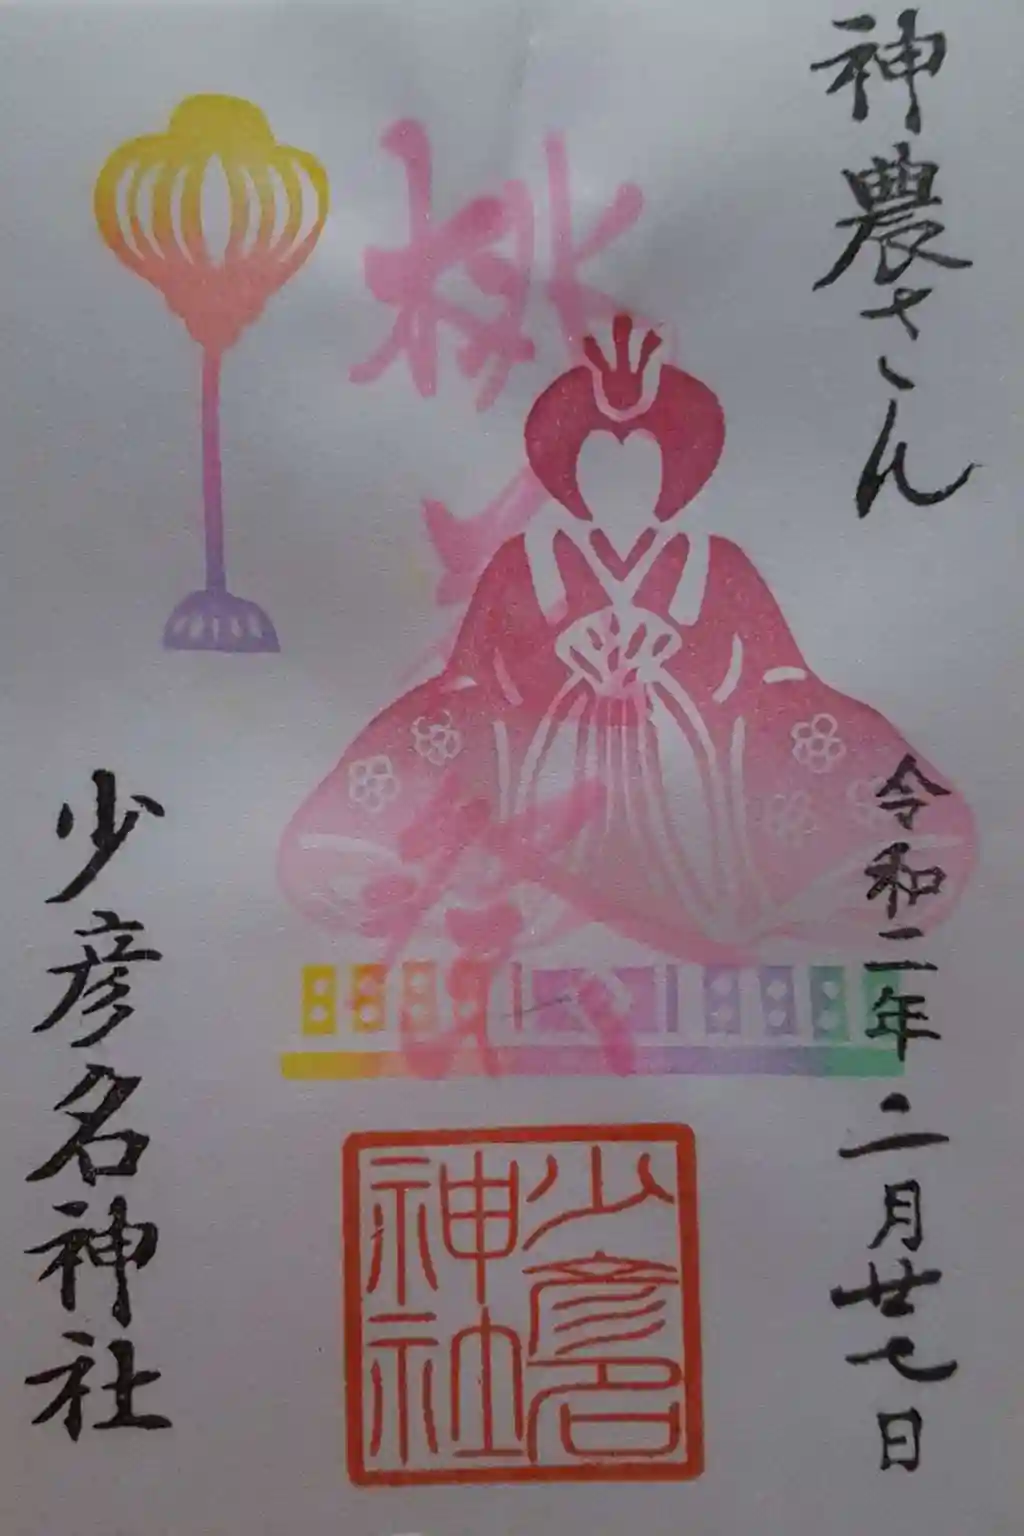 神農さん
令和二年二月廿七日
桃の節供
少彦名神社
少彦名
神社